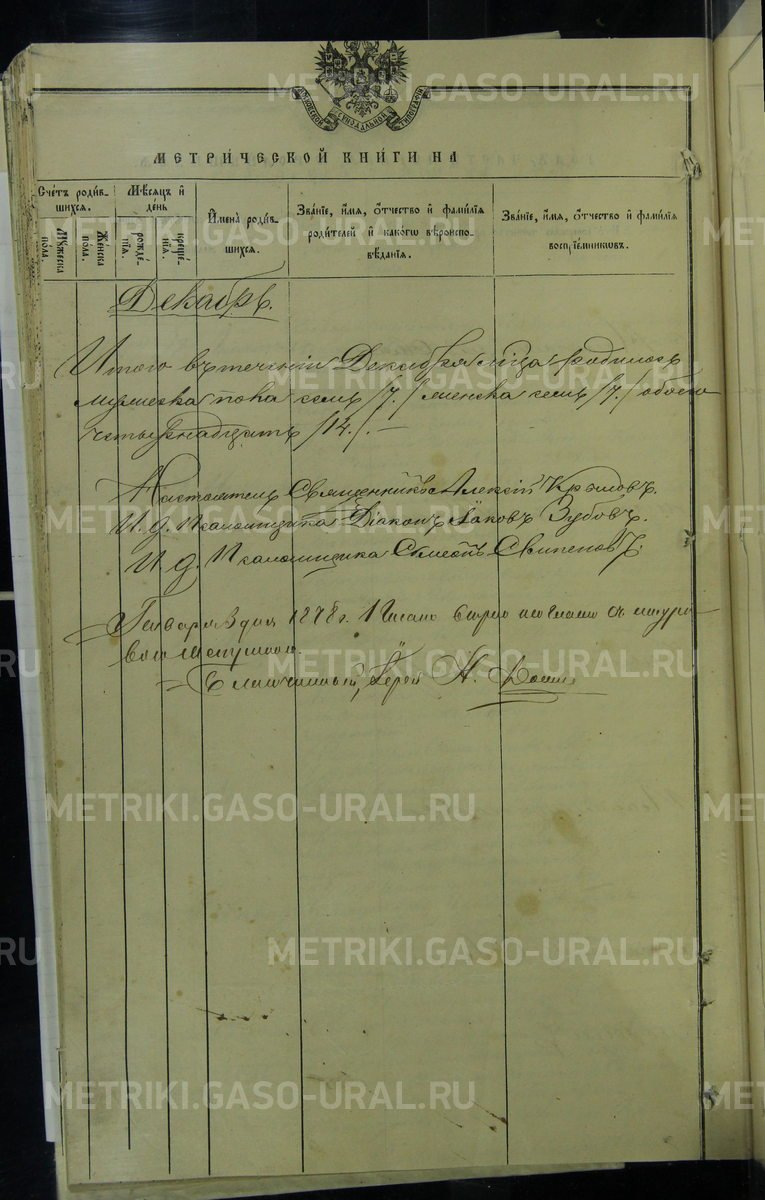 МЕТРИ́ЧЕСКОЙ КНИ́ГИ НА
Сче́тъ роди́в-
шихся.
Мѣ́сяцъ и
де́нь
Имена̀ роди́в-
шихся.
Зва́нїе, и́мя, ѻ҆́тчество и҆ фами́лїя
роди́телей и҆ како́гѡ вѣроиспо-
вѣ́данїя.
Зва́нїе, и́мя, ѻ҆́тчество и҆ фами́лїя
воспрїе́мниковъ.
Мꙋ́жеска по́ла.
Же́нска по́ла.
рожде́-нїя.
креще́-нїя.
Декабрь.
Итого въ теченіи Декабря м̃ца родилось
мужеска пола семь /7./ женска семь /7./ обоего
четырнадцать /14./.—
Настоятель Священникъ Алексій Крыловъ.
И. д. Псаломщика Діаконъ Іаковъ Зубовъ.
И. д. Псаломщика
Генваря 3 дня 1878 г. Писано согласно съ
Благочинный, Іерей А.
METRIKI.GASO-URAL.RU